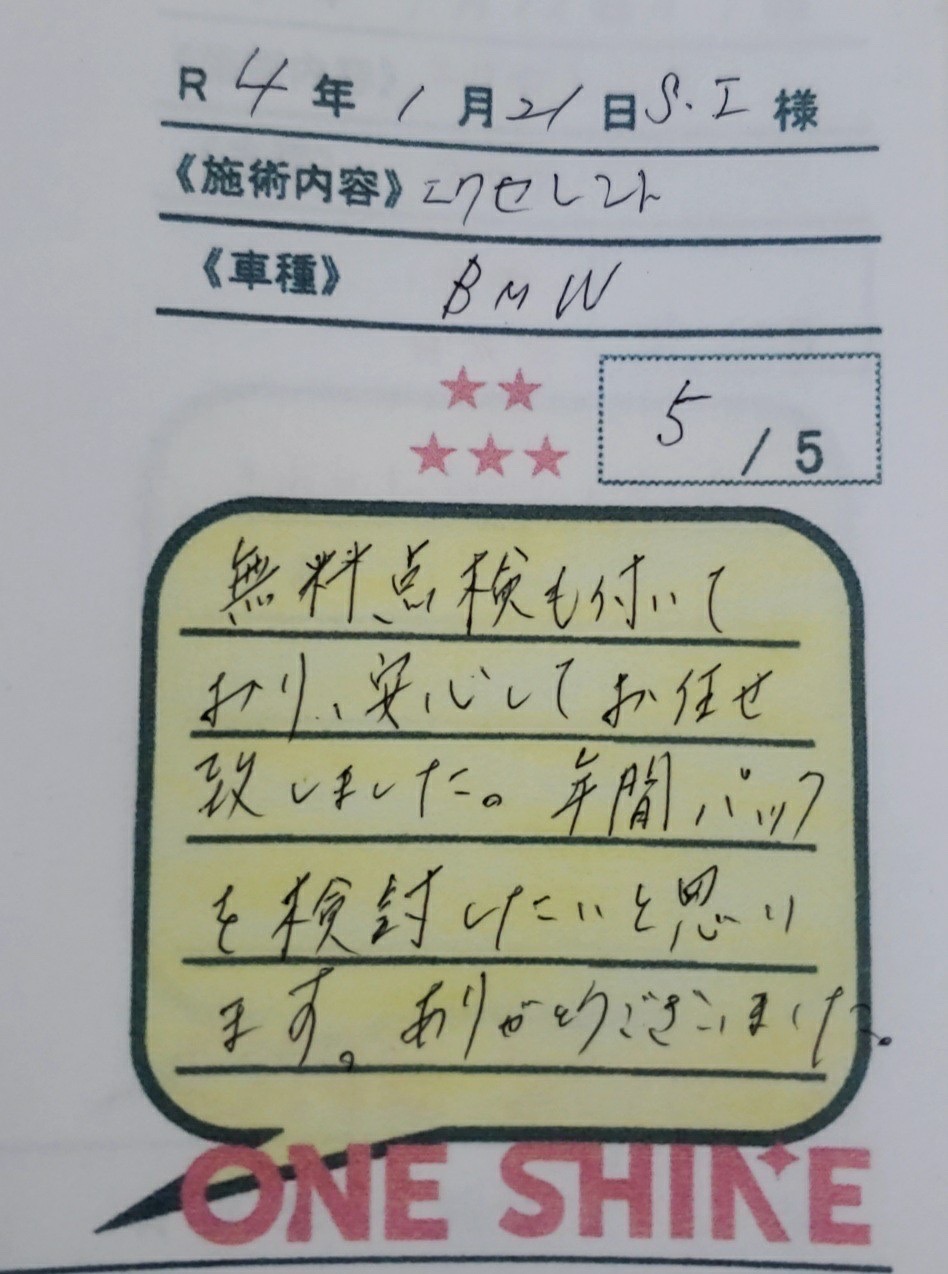 R 4 年 1 月 21 日 S.I 様
《施術内容》エクセレント
《車種》 BMW
5 / 5
無料点検も付いて
おり、安心してお任せ
致しました。年間パック
を検討したいと思い
ます。ありがとうございました。
ONE SHINE